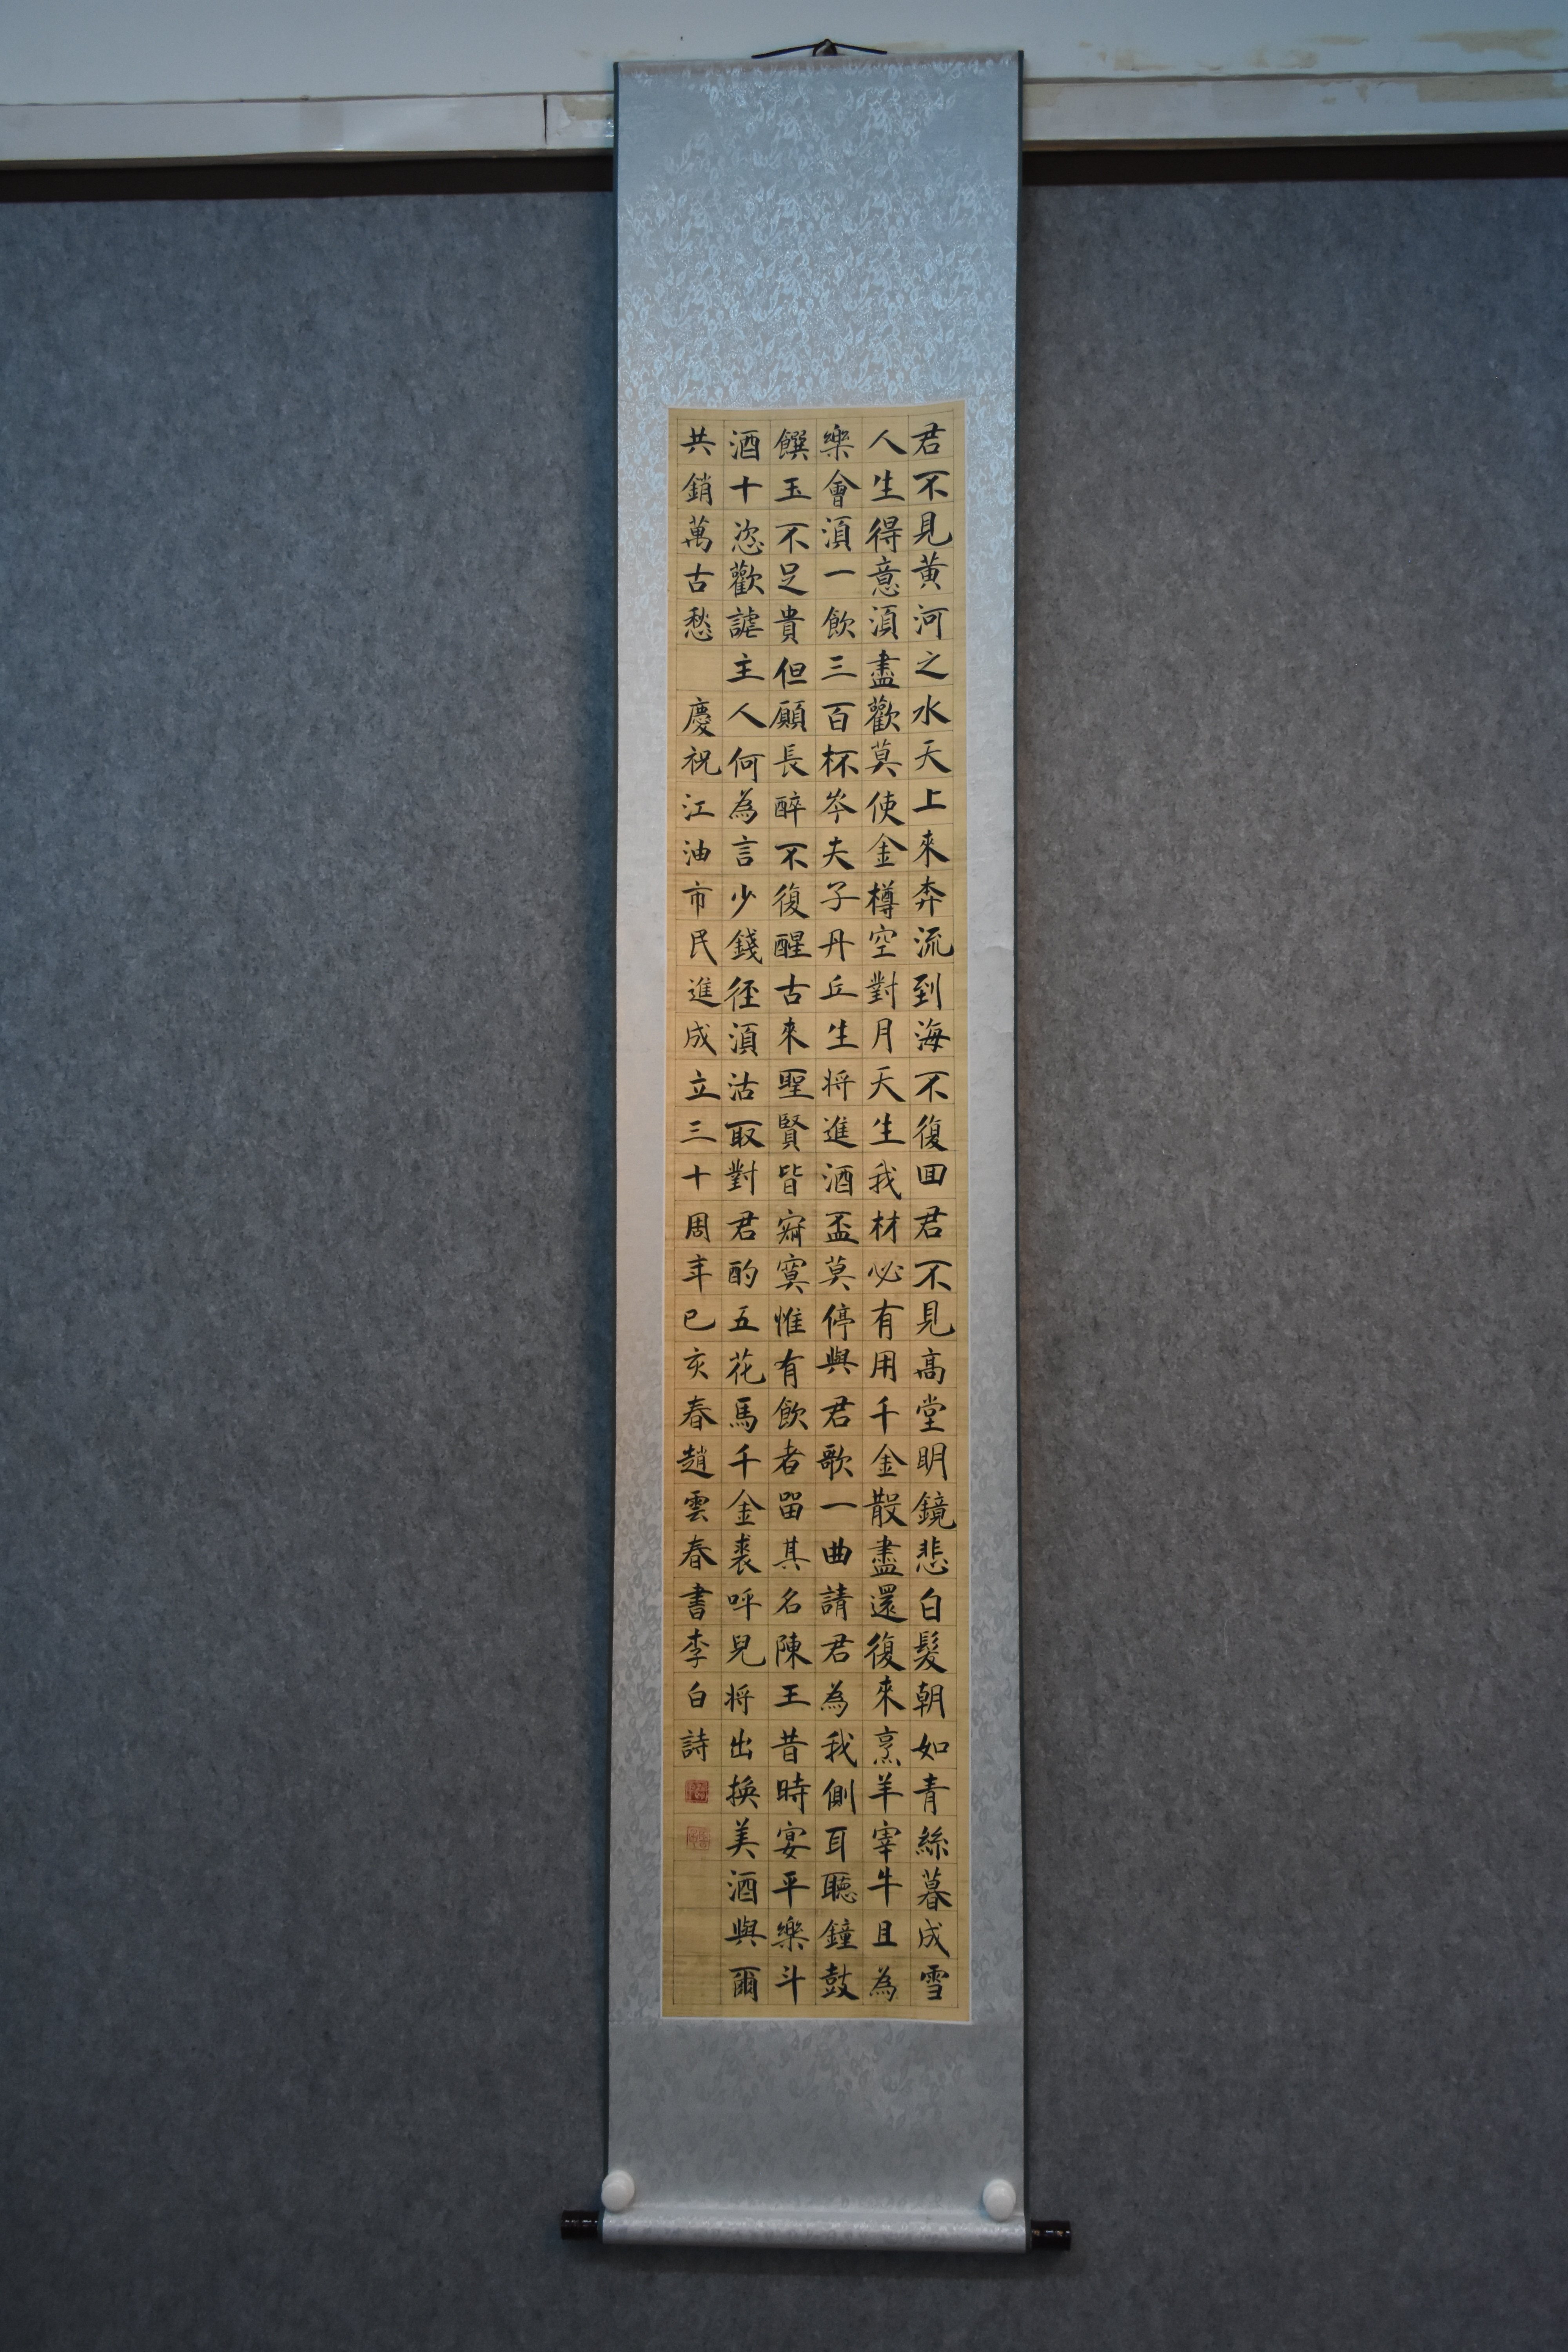 君不見黃河之水天上來奔流到海不復回君不見高堂明鏡悲白髮朝如青絲暮成雪
人生得意須盡歡莫使金樽空對月天生我材必有用千金散盡還復來烹羊宰牛且為
樂會須一飲三百杯岑夫子丹丘生将進酒盃莫停與君歌一曲請君為我側耳聽鐘鼓
饌玉不足貴但願長醉不復醒古來聖賢皆寂寞惟有飲者留其名陳王昔時宴平樂斗
酒十恣歡謔主人何為言少錢徑須沽取對君酌五花馬千金裘呼兒将出換美酒與爾
共銷萬古愁 慶祝江油市民進成立三十周年己亥春趙雲春書李白詩